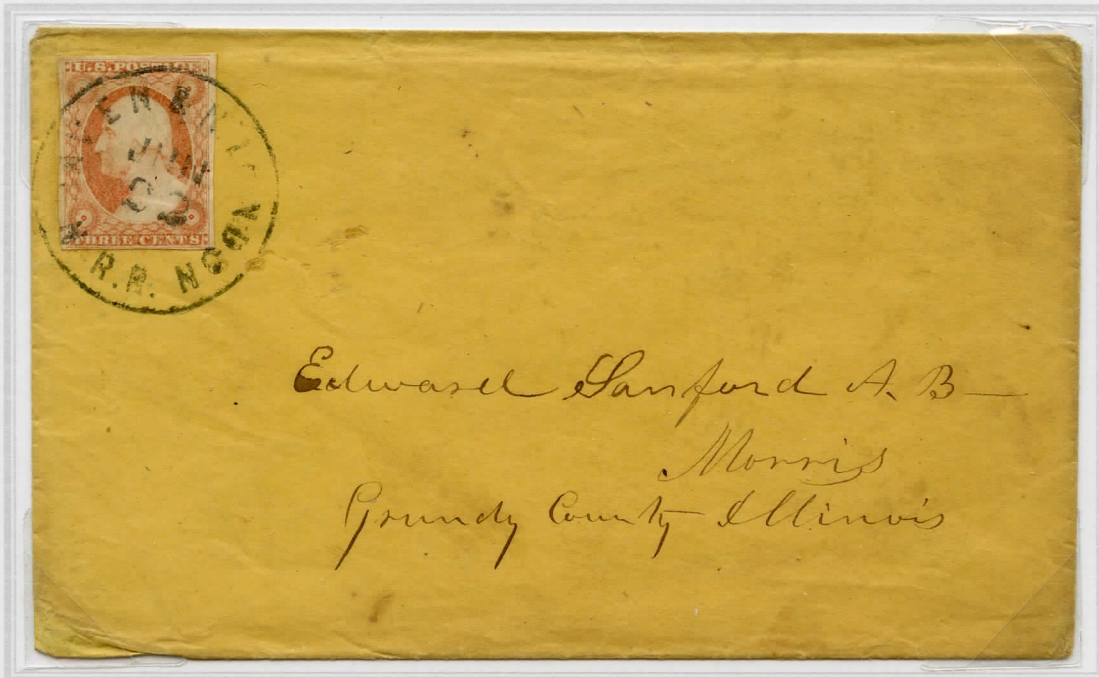 U.S. POSTAGE
THREE CENTS
R.R. N&GN
JUN
Edward Sanford A. B
Morris
Grundy County Illinois